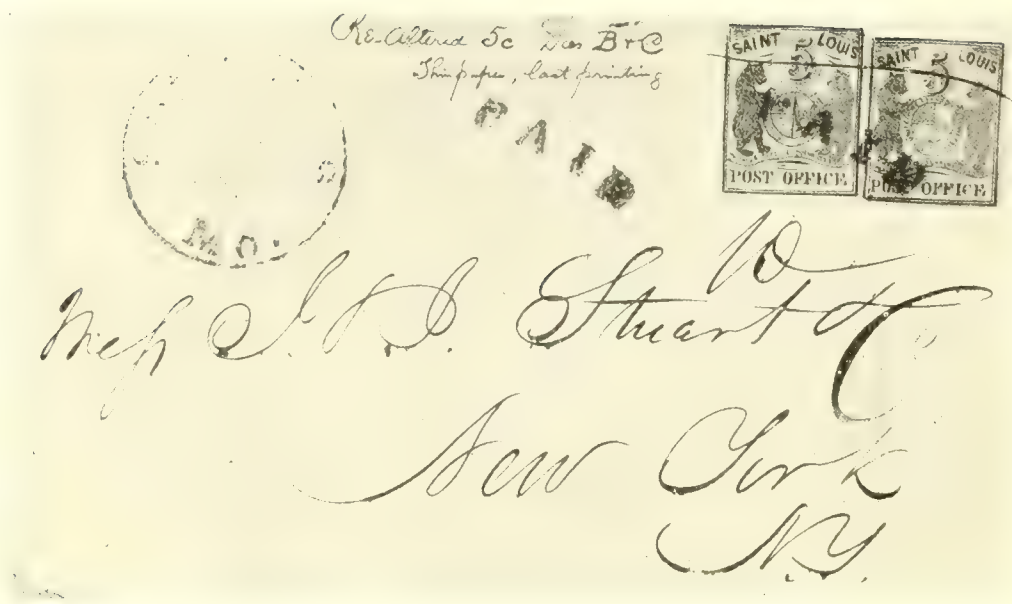 Re-Altered 5c Dies B & C
Thin paper, last printing
SAINT 5 LOUIS
POST OFFICE
SAINT 5 LOUIS
POST OFFICE
PAID
PAID
MO.
10
Mess J. & J. Stuart & Co
New York
N.Y.